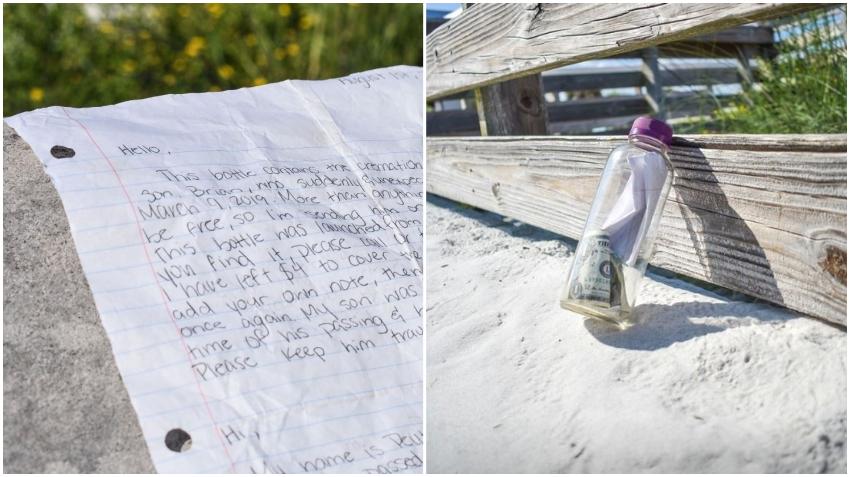 August 1st,
Hello,
This bottle contains the cremation
son, Brian, who suddenly & unexpec
March 9, 2019. More than anythin
be free, so I'm sending him on
This bottle was launched from
you find it, please call or t
I have left $4 to cover the
add your own note, then
once again. My son was
time of his passing & h
Please keep him trav
Hi,
My name is
passed